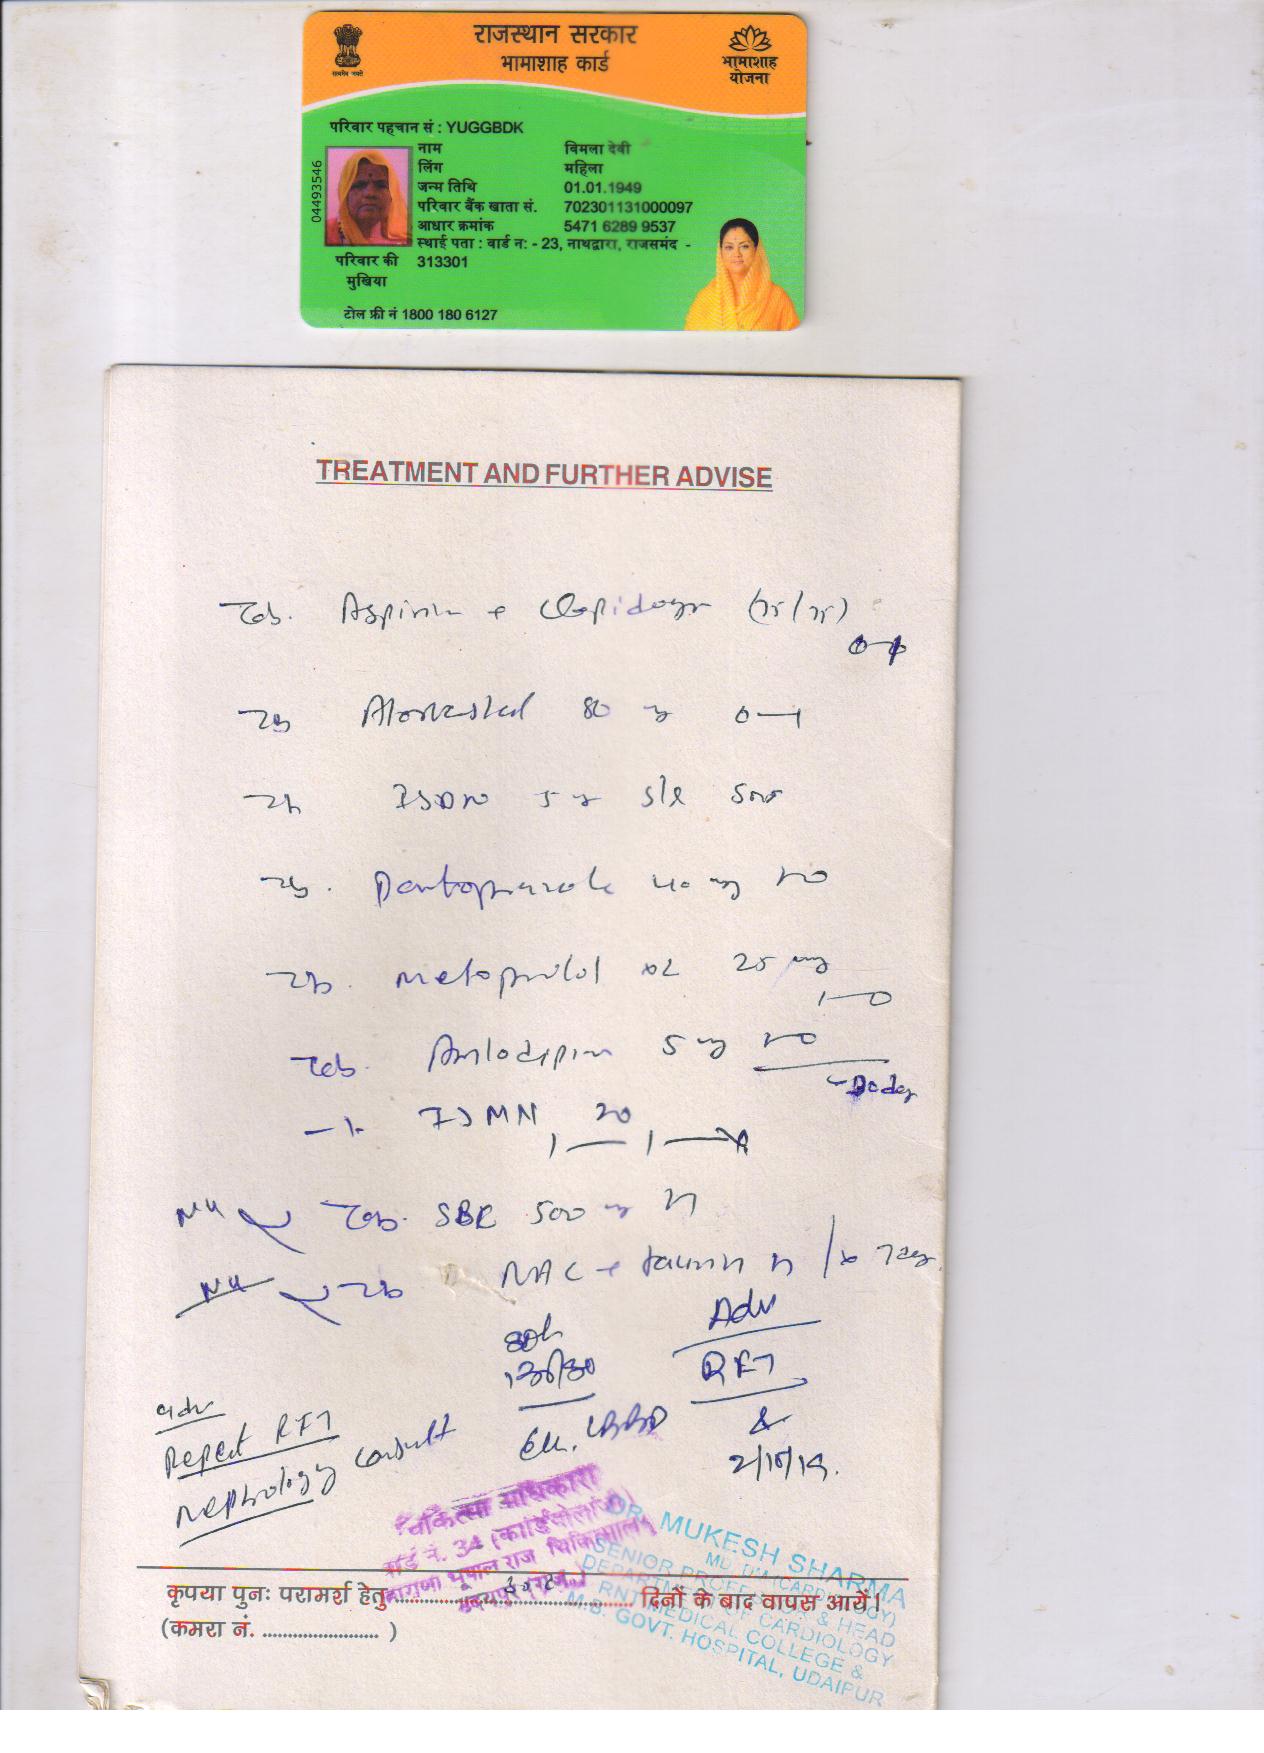 राजस्थान सरकार
भामाशाह कार्ड
सत्यमेव जयते
भामाशाह
योजना
परिवार पहचान सं : YUGGBDK
नाम विमला देवी
लिंग महिला
जन्म तिथि 01.01.1949
परिवार बैंक खाता सं. 702301131000097
आधार क्रमांक 5471 6289 9537
स्थाई पता : वार्ड न: - 23, नाथद्वारा, राजसमंद -
313301
04493546
परिवार की
मुखिया
टोल फ्री नं 1800 180 6127
TREATMENT AND FURTHER ADVISE
Tab. Aspirin + Clopidogr
Tab 80
ISDN 5 S/L SOS
Tab. Pantoprazole 40 mg
Tab. Metoprolol XL 25 mg
Tab. Amlodipin 5 mg
ISMN 20
Tab. SBC 500
NAC + taurin
Adv
130/80
RFT
adv
Repeat RFT
Nephrology consult
LBBB
&
2/10/19.
चिकित्सा अधिकारी
वार्ड नं. 34 (कार्डियोलॉजी)
महाराणा भूपाल राज चिकित्सालय
उदयपुर (राज.)
DR. MUKESH SHARMA
MD, DM (CARDIOLOGY)
SENIOR PROFESSOR & HEAD
DEPARTMENT OF CARDIOLOGY
RNT MEDICAL COLLEGE &
M.B. GOVT. HOSPITAL, UDAIPUR
कृपया पुनः परामर्श हेतु.............................. दिनों के बाद वापस आयें।
(कमरा नं. ........................ )